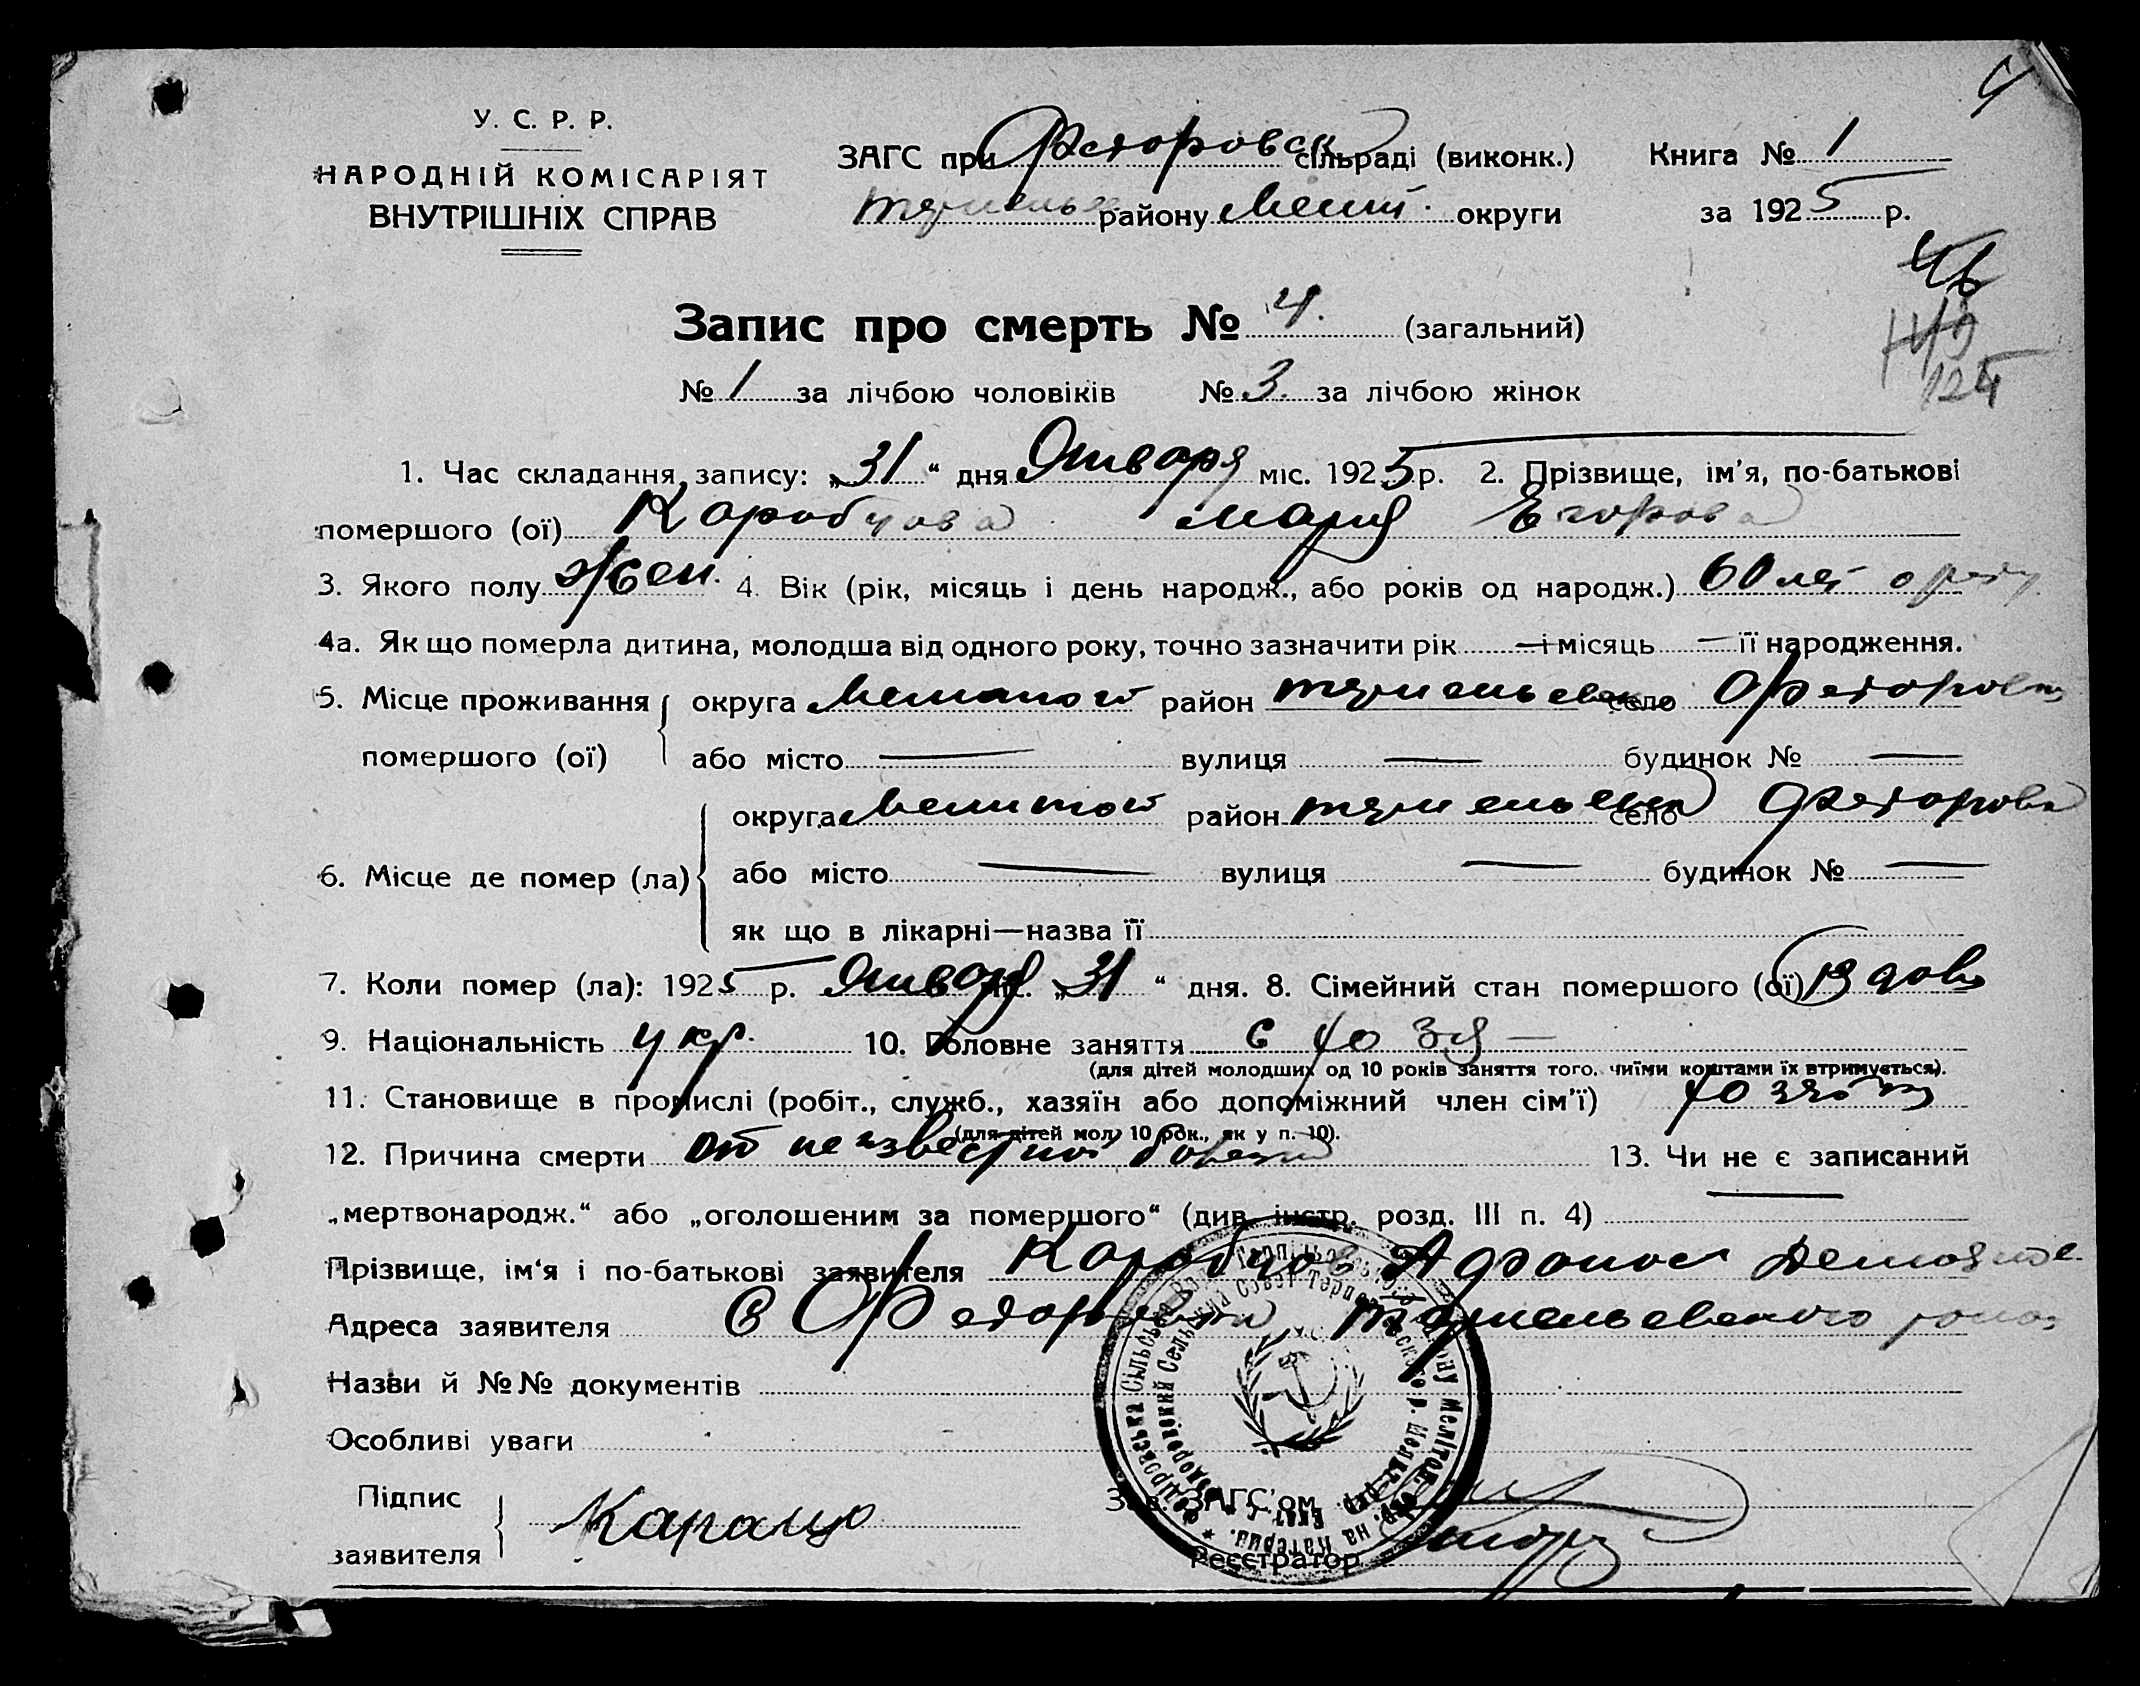 4
У. С. Р. Р.
НАРОДНІЙ КОМІСАРІЯТ
ВНУТРІШНІХ СПРАВ
ЗАГС при Федоровск сільраді (виконк.) Книга № 1
району Мелит. округи за 1925 р.
46
124
Запис про смерть № 4. (загальний)
№ 1 за лічбою чоловіків № 3. за лічбою жінок
1. Час складання запису: „31“ дня Января міс. 1925 р. 2. Прізвище, ім'я, по-батькові
помершого (ої) Коробчова Мария Егорова
3. Якого полу жен. 4. Вік (рік, місяць і день народж., або років од народж.) 60 лет
4а. Як що померла дитина, молодша від одного року, точно зазначити рік — і місяць — її народження.
5. Місце проживання округа Мелитоп район село Федоровка
помершого (ої) або місто — вулиця — будинок № —
округа Мелитоп район село Федоровка
6. Місце де помер (ла) або місто — вулиця — будинок № —
як що в лікарні—назва її
7. Коли помер (ла): 1925 р. Января міс. „31“ дня. 8. Сімейний стан помершого (ої) Вдова
9. Національність укр. 10. Головне заняття
(для дітей молодших од 10 років заняття того, чиїми коштами їх втримується).
11. Становище в промислі (робіт., служб., хазяїн або допоміжний член сім'ї)
(для дітей мол. 10 рок., як у п. 10).
12. Причина смерти от неизвестной болезни 13. Чи не є записаний
„мертвонародж.“ або „оголошеним за помершого“ (див. інстр. розд. III п. 4) —
Прізвище, ім'я і по-батькові заявителя Коробчов Афонас
Адреса заявителя С Федоровка
Назви й №№ документів
Особливі уваги
Підпис
заявителя
Зав. ЗАГС'ом
Реєстратор